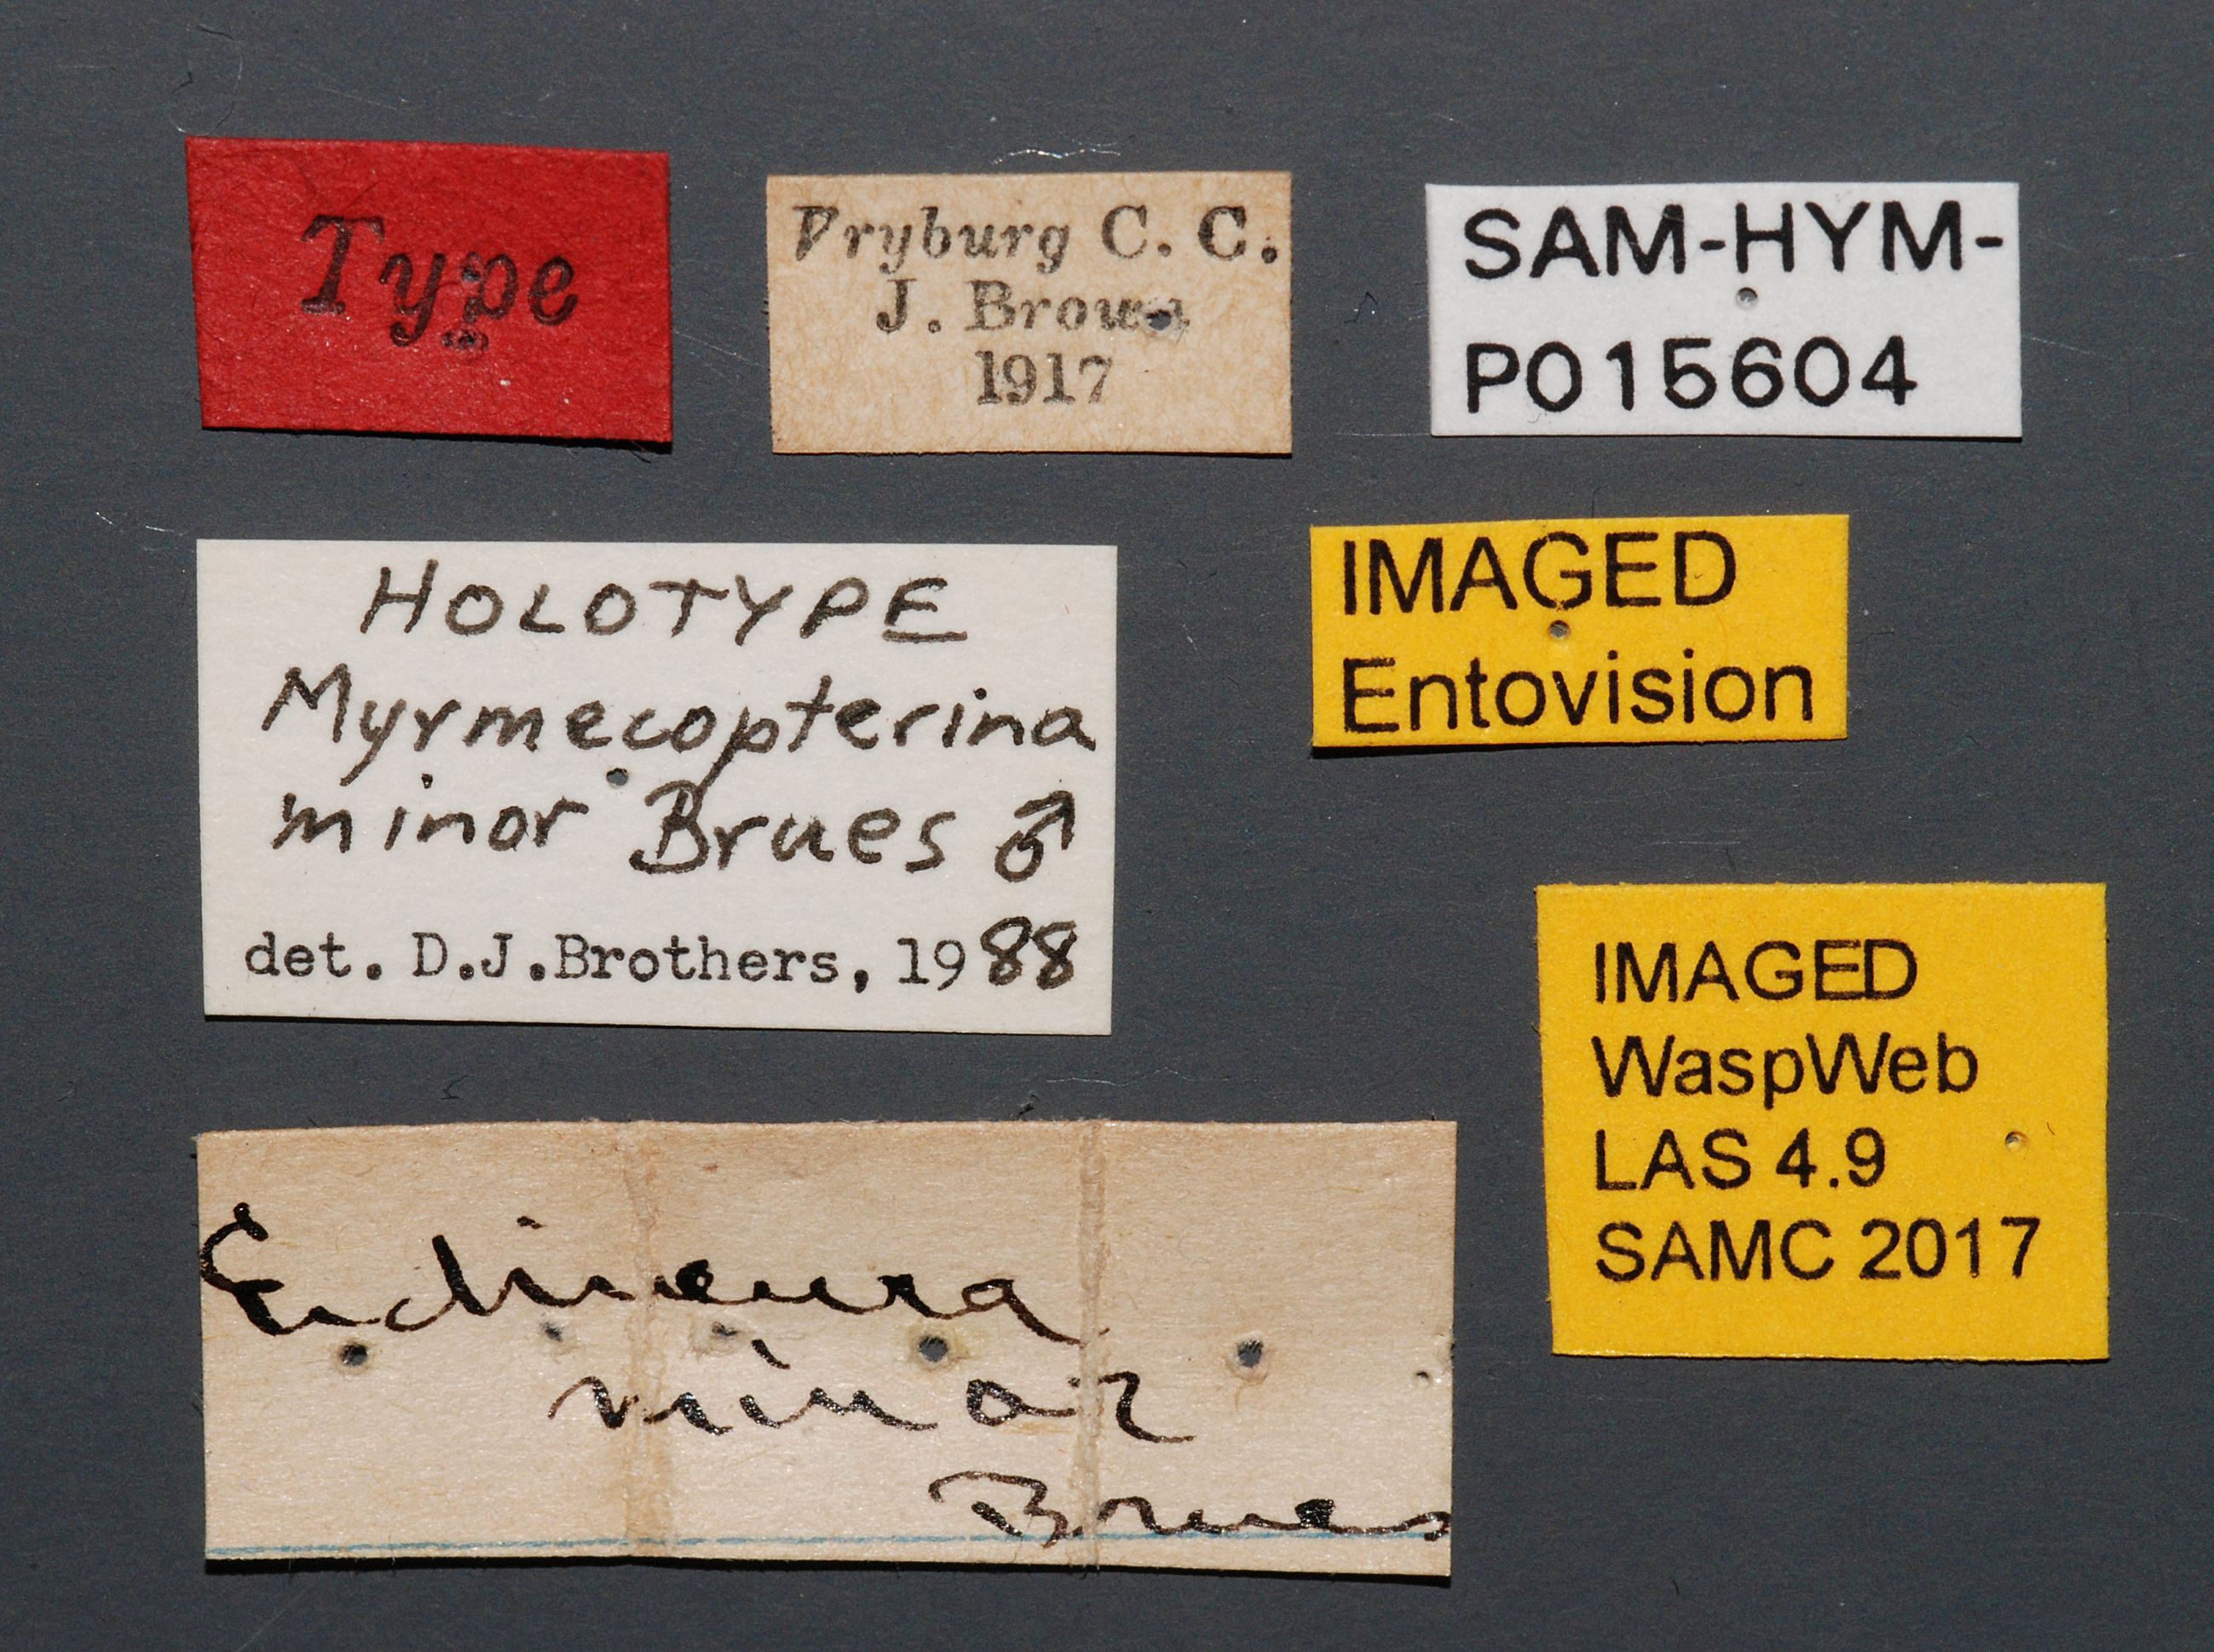 Type
Vryburg C. C.
J. Brown
1917
SAM-HYM-
P015604
HOLOTYPE
Myrmecopterina
minor Brues ♂
det. D.J.Brothers, 1988
IMAGED
Entovision
IMAGED
WaspWeb
LAS 4.9
SAMC 2017
Euclineura
minor
Brues